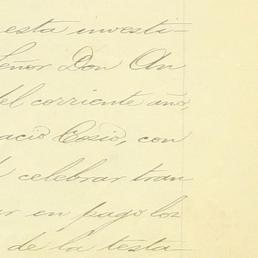 esta investi-
Señor Don An
del corriente año,
acio Cosio, con
celebrar tran
ar en pago los
de la testa-